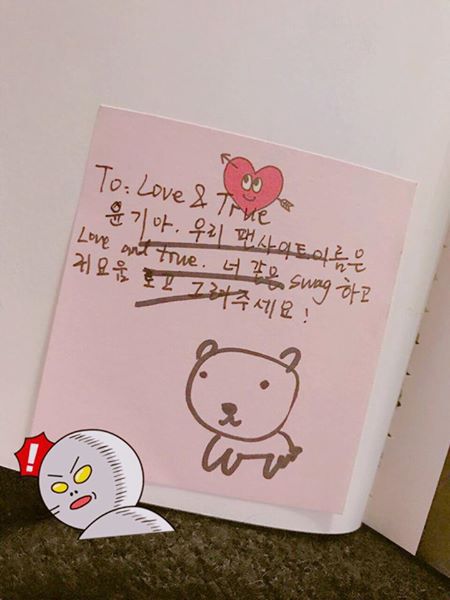 To: Love & True
윤기아. 우리 팬사이트이름은
Love and true. 너 같은 swag 하고
귀요움 로고 그려주세요!
!